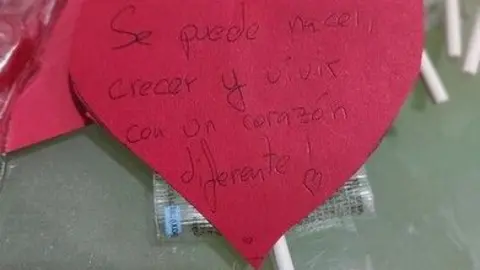 Se puede nacer,
crecer y vivir
con un corazón
diferente! ♡